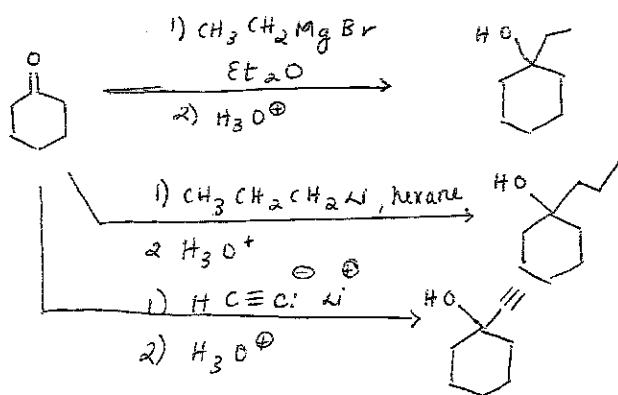 1) CH₃CH₂MgBr
Et₂O
2) H₃O⊕
O
HO
1) CH₃CH₂CH₂Li, hexane
2 H₃O⁺
HO
1) HC≡C:⊖ Li⊕
2) H₃O⊕
HO